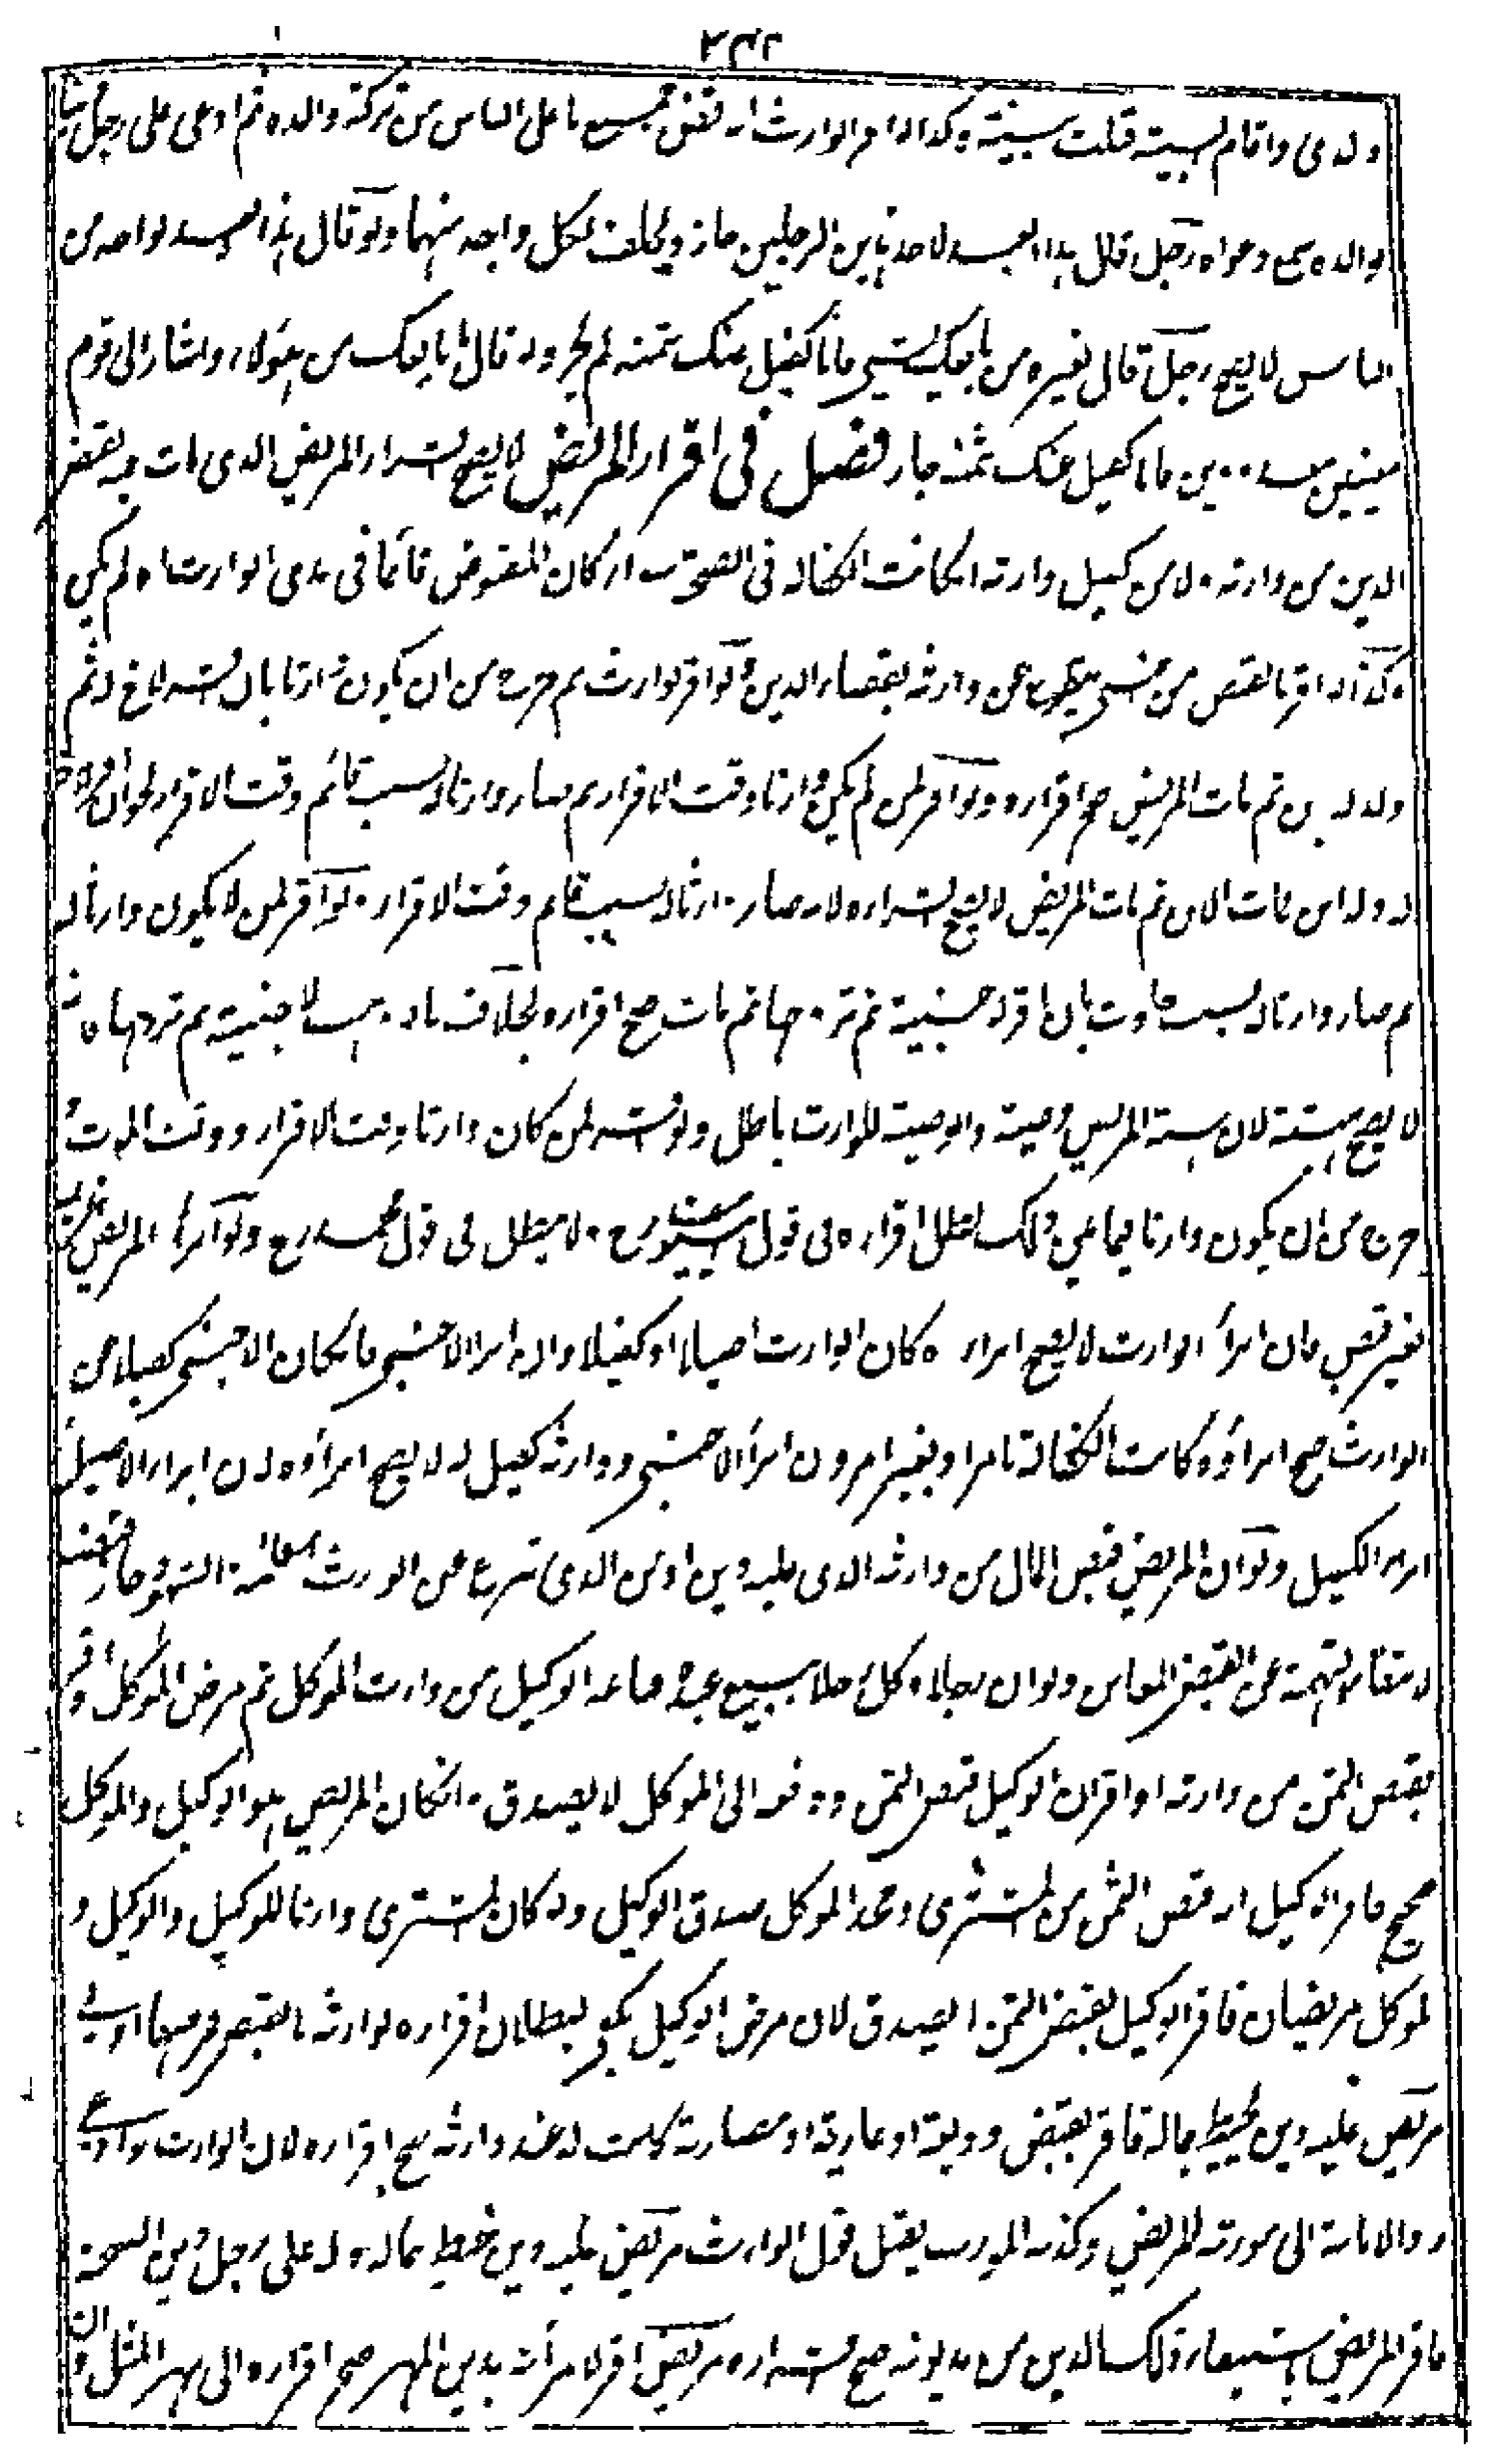 ٢٤٢
ولدى واقام البينة قبلت بينته وكذا اذا اقر الوارث انه قبض جميع ما على الناس من تركة والده ثم ادعى على رجل
والده يسمع دعواه رجل قال هذا العبد لاحد هذين الرجلين جاز ويحلف لكل واحد منهما ولو قال هذا العبد لواحد من
الناس لا يصح رجل قال لغيره من بايعك بشيء فانا كفيل عنك بثمنه لم يجز ولو قال من بايعك من هؤلاء واشار الى قوم
معينين فانا كفيل عنك بثمنه جاز فصل فى اقرار المريض لا يصح اقرار المريض الذى مات فيه بقبض
الدين من وارثه ولا من كفيل وارثه اذا كانت الكفالة فى الصحة ان كان المقبوض قائما فى يدى الوارث او لم يكن
وكذا لو اقر بالقبض من اجنبى تبرع عن وارثه بقضاء الدين ولو اقر لوارث ثم خرج من ان يكون وارثا بان اقر لاخ له ثم
ولد له ابن ثم مات المريض صح اقراره ولو اقر لمن لم يكن وارثا وقت الاقرار ثم صار وارثا له بسبب قائم وقت الاقرار
له ولد ابن مات الابن ثم مات المريض لا يصح اقراره لانه صار وارثا له بسبب قائم وقت الاقرار ولو اقر لمن لا يكون وارثا له
ثم صار وارثا له بسبب حادث بان اقر لاجنبية ثم تزوجها ثم مات صح اقراره بخلاف ما لو وهب لاجنبية ثم تزوجها
لا يصح هبته لان هبة المريض وصية والوصية للوارث باطل ولو اقر لمن كان وارثا وقت الاقرار ووقت الموت و
خرج من ان يكون وارثا فيما بين ذلك بطل اقراره فى قول ولا يبطل فى قول محمد رح ولو ابرأ المريض
بغير قبض فان ابرأ الوارث لا يصح ابراؤه كان الوارث اصيلا او كفيلا وان ابرأ الاجنبى فان كان الاجنبى كفيلا عن
الوارث صح ابراؤه كانت الكفالة بامر او بغير امر وان ابرأ الاجنبى ووارثه كفيل له لا يصح ابراؤه لان ابراء الاصيل
ابراء الكفيل ولو ان المريض قبض المال من وارثه الذى عليه دين او من الذى تبرع عن الوارث بمعاينة الشهود جاز
لانتفاء التهمة عن القبض المعاين ولو ان رجلا وكل رجلا ببيع عبده فباعه الوكيل من وارث الموكل ثم مرض الموكل واقر
بقبض الثمن من وارثه او اقر ان الوكيل قبض الثمن ودفعه الى الموكل لا يصدق وان كان المريض هو الوكيل والموكل
صحيح فاقر الوكيل انه قبض الثمن من المشترى وجحد الموكل صدق الوكيل ولو كان المشترى وارثا للوكيل والوكيل و
الموكل مريضان فاقر الوكيل بقبض الثمن لا يصدق لان مرض الوكيل يكفى لبطلان اقراره لوارثه بالقبض فمرضهما اولى
مريض عليه دين محيط بماله فاقر بقبض وديعة او عارية او مضاربة كانت له عند وارثه صح اقراره لان الوارث لو ادعى
رد الامانة الى مورثه المريض وكذبه المورث يقبل قول الوارث مريض عليه دين محيط بماله وله على رجل دين الصحة
فاقر المريض باستيفاء ذلك الدين من مديونه صح اقراره مريض اقر لامرأته بدين المهر صح اقراره الى مهر المثل وان